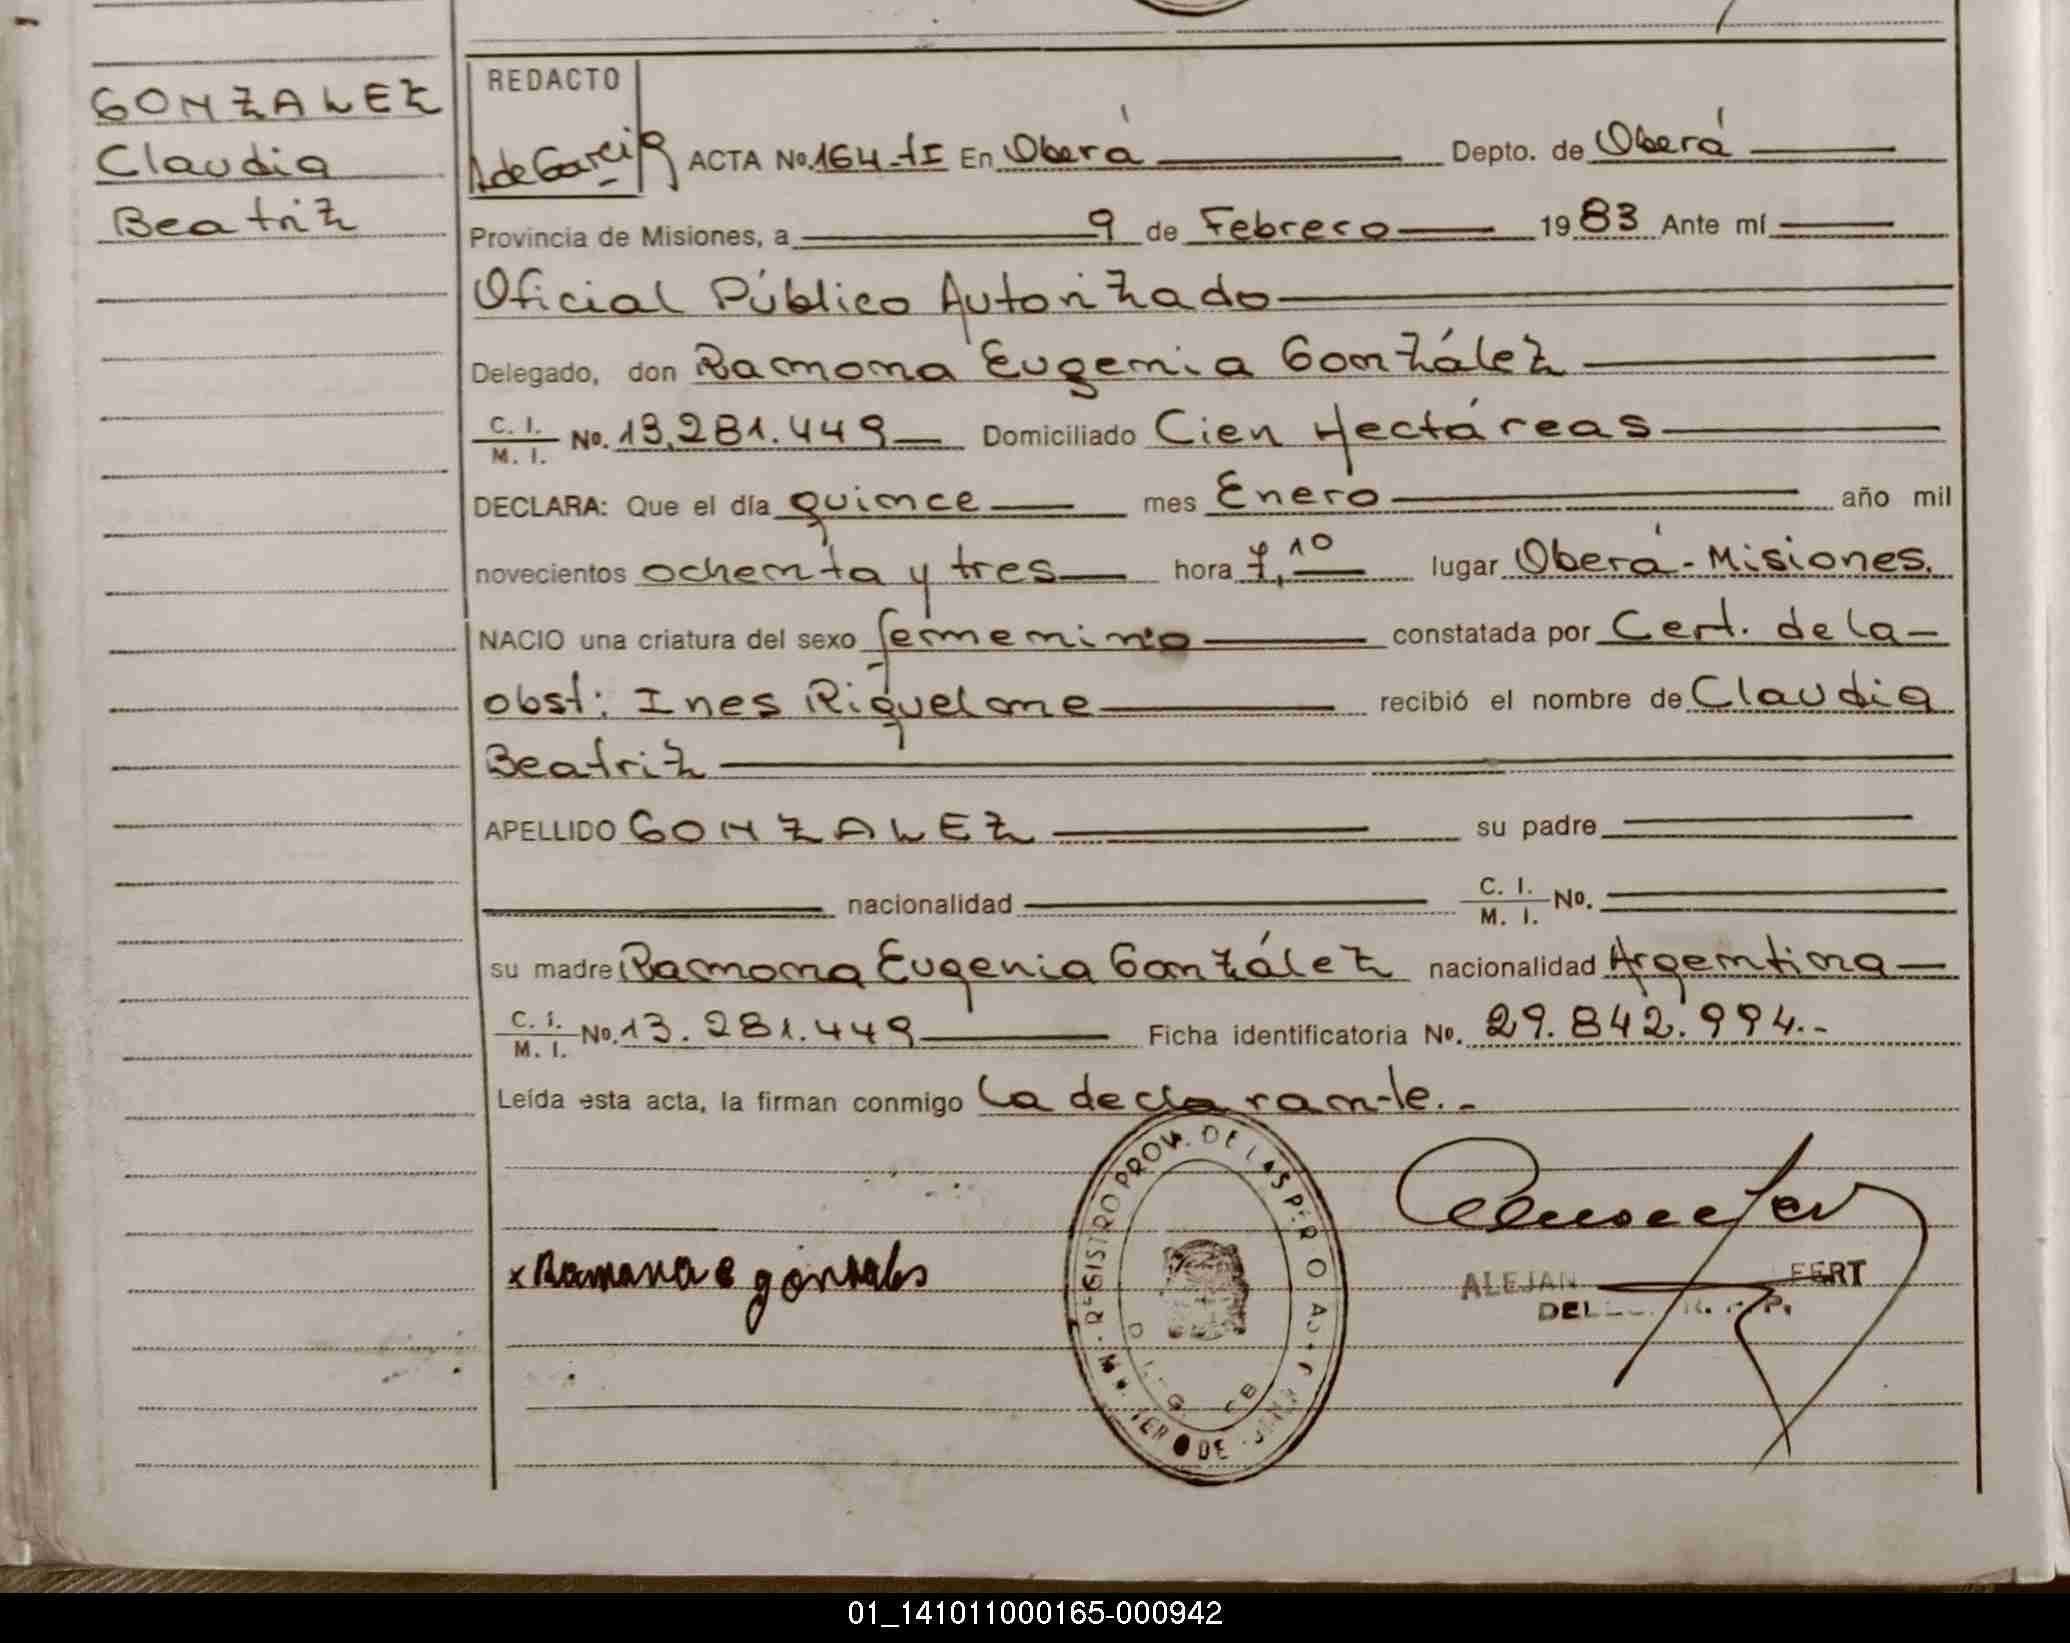 GONZALEZ
Claudia
Beatriz
REDACTO
A de Garcia ACTA No. 164-tI En Oberá Depto. de Oberá
Provincia de Misiones, a 9 de Febrero 1983 Ante mí
Oficial Público Autorizado
Delegado, don Ramona Eugenia González
C. I. / M. I. No. 13.281.449 Domiciliado Cien Hectáreas
DECLARA: Que el día quince mes Enero año mil
novecientos ochenta y tres hora 7,10 lugar Oberá-Misiones.
NACIO una criatura del sexo femenino constatada por Cert. de la
obst: Ines Riquelme recibió el nombre de Claudia
Beatriz
APELLIDO GONZALEZ su padre
nacionalidad C. I. / M. I. No.
su madre Ramona Eugenia González nacionalidad Argentina
C. I. / M. I. No. 13.281.449 Ficha identificatoria No. 29.842.994.-
Leída esta acta, la firman conmigo la declarante.-
REGISTRO PROV. DE LAS PERSONAS
x Ramona e gonzales
ALEJAN FERT
01_141011000165-000942